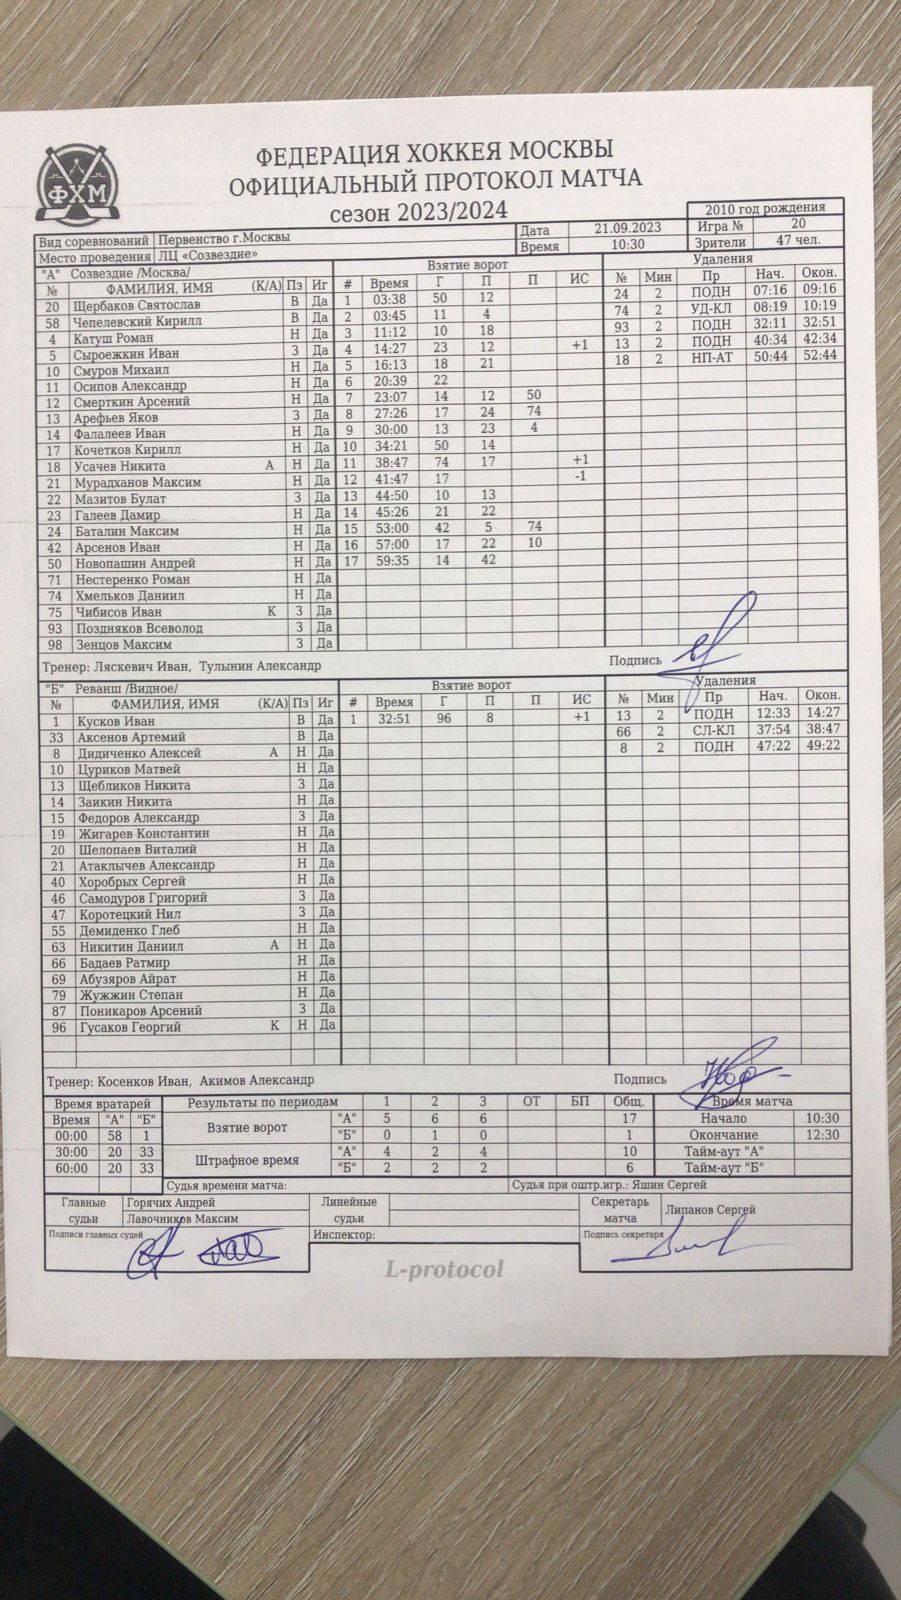 ФХМ
ФЕДЕРАЦИЯ ХОККЕЯ МОСКВЫ
ОФИЦИАЛЬНЫЙ ПРОТОКОЛ МАТЧА
сезон 2023/2024
2010 год рождения
Вид соревнований Первенство г.Москвы Дата 21.09.2023 Игра № 20
Место проведения ЛЦ «Созвездие» Время 10:30 Зрители 47 чел.
"А" Созвездие /Москва/ Взятие ворот Удаления
№ ФАМИЛИЯ, ИМЯ (К/А) Пз Иг # Время Г П П ИС № Мин Пр Нач. Окон.
20 Щербаков Святослав В Да 1 03:38 50 12 24 2 ПОДН 07:16 09:16
58 Чепелевский Кирилл В Да 2 03:45 11 4 74 2 УД-КЛ 08:19 10:19
4 Катуш Роман Н Да 3 11:12 10 18 93 2 ПОДН 32:11 32:51
5 Сыроежкин Иван З Да 4 14:27 23 12 +1 13 2 ПОДН 40:34 42:34
10 Смуров Михаил Н Да 5 16:13 18 21 18 2 НП-АТ 50:44 52:44
11 Осипов Александр Н Да 6 20:39 22
12 Смерткин Арсений Н Да 7 23:07 14 12 50
13 Арефьев Яков З Да 8 27:26 17 24 74
14 Фалалеев Иван Н Да 9 30:00 13 23 4
17 Кочетков Кирилл Н Да 10 34:21 50 14
18 Усачев Никита А Н Да 11 38:47 74 17 +1
21 Мурадханов Максим Н Да 12 41:47 17 -1
22 Мазитов Булат З Да 13 44:50 10 13
23 Галеев Дамир Н Да 14 45:26 21 22
24 Баталин Максим Н Да 15 53:00 42 5 74
42 Арсенов Иван Н Да 16 57:00 17 22 10
50 Новопашин Андрей Н Да 17 59:35 14 42
71 Нестеренко Роман Н Да
74 Хмельков Даниил Н Да
75 Чибисов Иван К З Да
93 Поздняков Всеволод З Да
98 Зенцов Максим З Да
Тренер: Ляскевич Иван, Тулынин Александр Подпись
"Б" Реванш /Видное/ Взятие ворот Удаления
№ ФАМИЛИЯ, ИМЯ (К/А) Пз Иг # Время Г П П ИС № Мин Пр Нач. Окон.
1 Кусков Иван В Да 1 32:51 96 8 +1 13 2 ПОДН 12:33 14:27
33 Аксенов Артемий В Да 66 2 СЛ-КЛ 37:54 38:47
8 Дидиченко Алексей А Н Да 8 2 ПОДН 47:22 49:22
10 Цуриков Матвей Н Да
13 Щебликов Никита З Да
14 Заикин Никита Н Да
15 Федоров Александр З Да
19 Жигарев Константин Н Да
20 Шелопаев Виталий Н Да
21 Атаклычев Александр Н Да
40 Хоробрых Сергей Н Да
46 Самодуров Григорий З Да
47 Коротецкий Нил З Да
55 Демиденко Глеб Н Да
63 Никитин Даниил А Н Да
66 Бадаев Ратмир Н Да
69 Абузяров Айрат Н Да
79 Жужжин Степан Н Да
87 Поникаров Арсений З Да
96 Гусаков Георгий К Н Да
Тренер: Косенков Иван, Акимов Александр Подпись
Время вратарей Результаты по периодам 1 2 3 ОТ БП Общ. Время матча
Время "А" "Б" Взятие ворот "А" 5 6 6 17 Начало 10:30
00:00 58 1 "Б" 0 1 0 1 Окончание 12:30
30:00 20 33 Штрафное время "А" 4 2 4 10 Тайм-аут "А"
60:00 20 33 "Б" 2 2 2 6 Тайм-аут "Б"
Судья времени матча: Судья при оштр.игр.: Яшин Сергей
Главные судьи Горячих Андрей Линейные судьи Секретарь матча Липанов Сергей
Лавочников Максим
Подписи главных судей Инспектор: Подпись секретаря
L-protocol